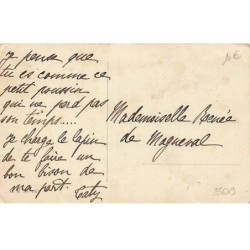 je pense que
tu es comme ce
petit poussin
qui ne perd pas
son temps....
je charge le lapin
de te faire un
bon bison de
ma part.
Mademoiselle Renée
de Magneval
10€